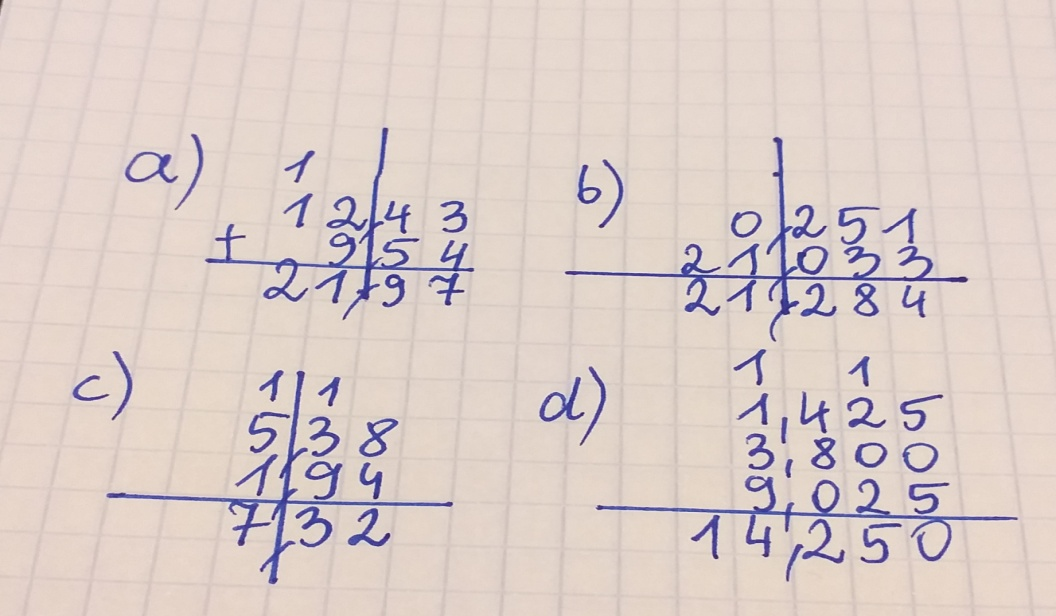 a)
1
12,43
+ 9,54
21,97
b)
0,251
21,033
21,284
c)
1 1
5,38
1,94
7,32
d)
1 1
1,425
3,800
9,025
14,250